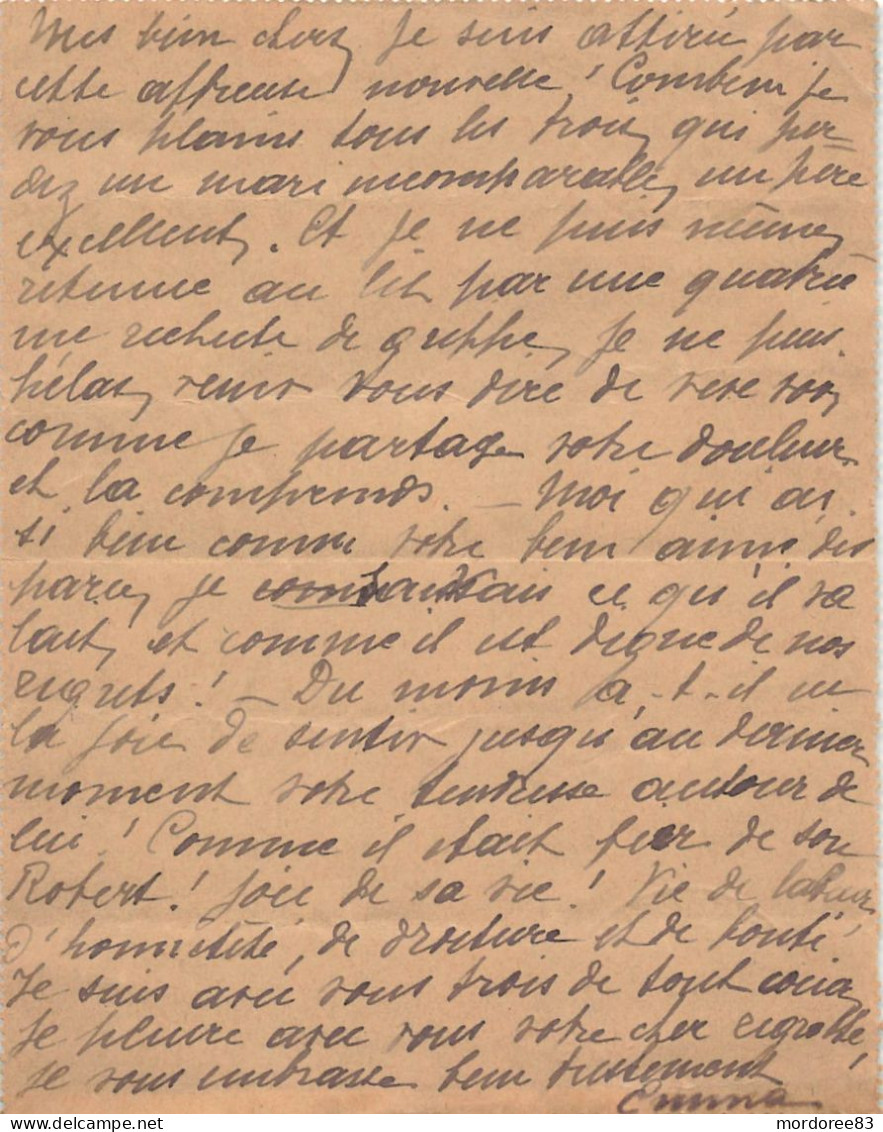 Mes bien chers, Je suis attirée par
cette affreuse nouvelle! Combien je
vous plains tous les trois, qui per-
dez un mari incomparable, un père
excellent. Et je ne puis même,
retenue au lit par une quatriè
me rechute de grippe, Je ne puis
hélas, venir vous dire de vive voix
comme je partage votre douleur
et la comprends. - Moi qui ai
si bien connu votre bien aimé dis
paru, je connaissais ce qu'il va
lait, et comme il est digne de nos
regrets! - Du moins a-t-il eu
la joie de sentir jusqu'au dernier
moment votre tendresse autour de
lui! Comme il était fier de son
Robert! Joie de sa vie! Vie de labeur,
d'honnêteté, de droiture et de bonté
Je suis avec vous trois de tout coeur,
Je pleure avec vous votre cher regretté,
Je vous embrasse bien tristement
Emma
mordoree83